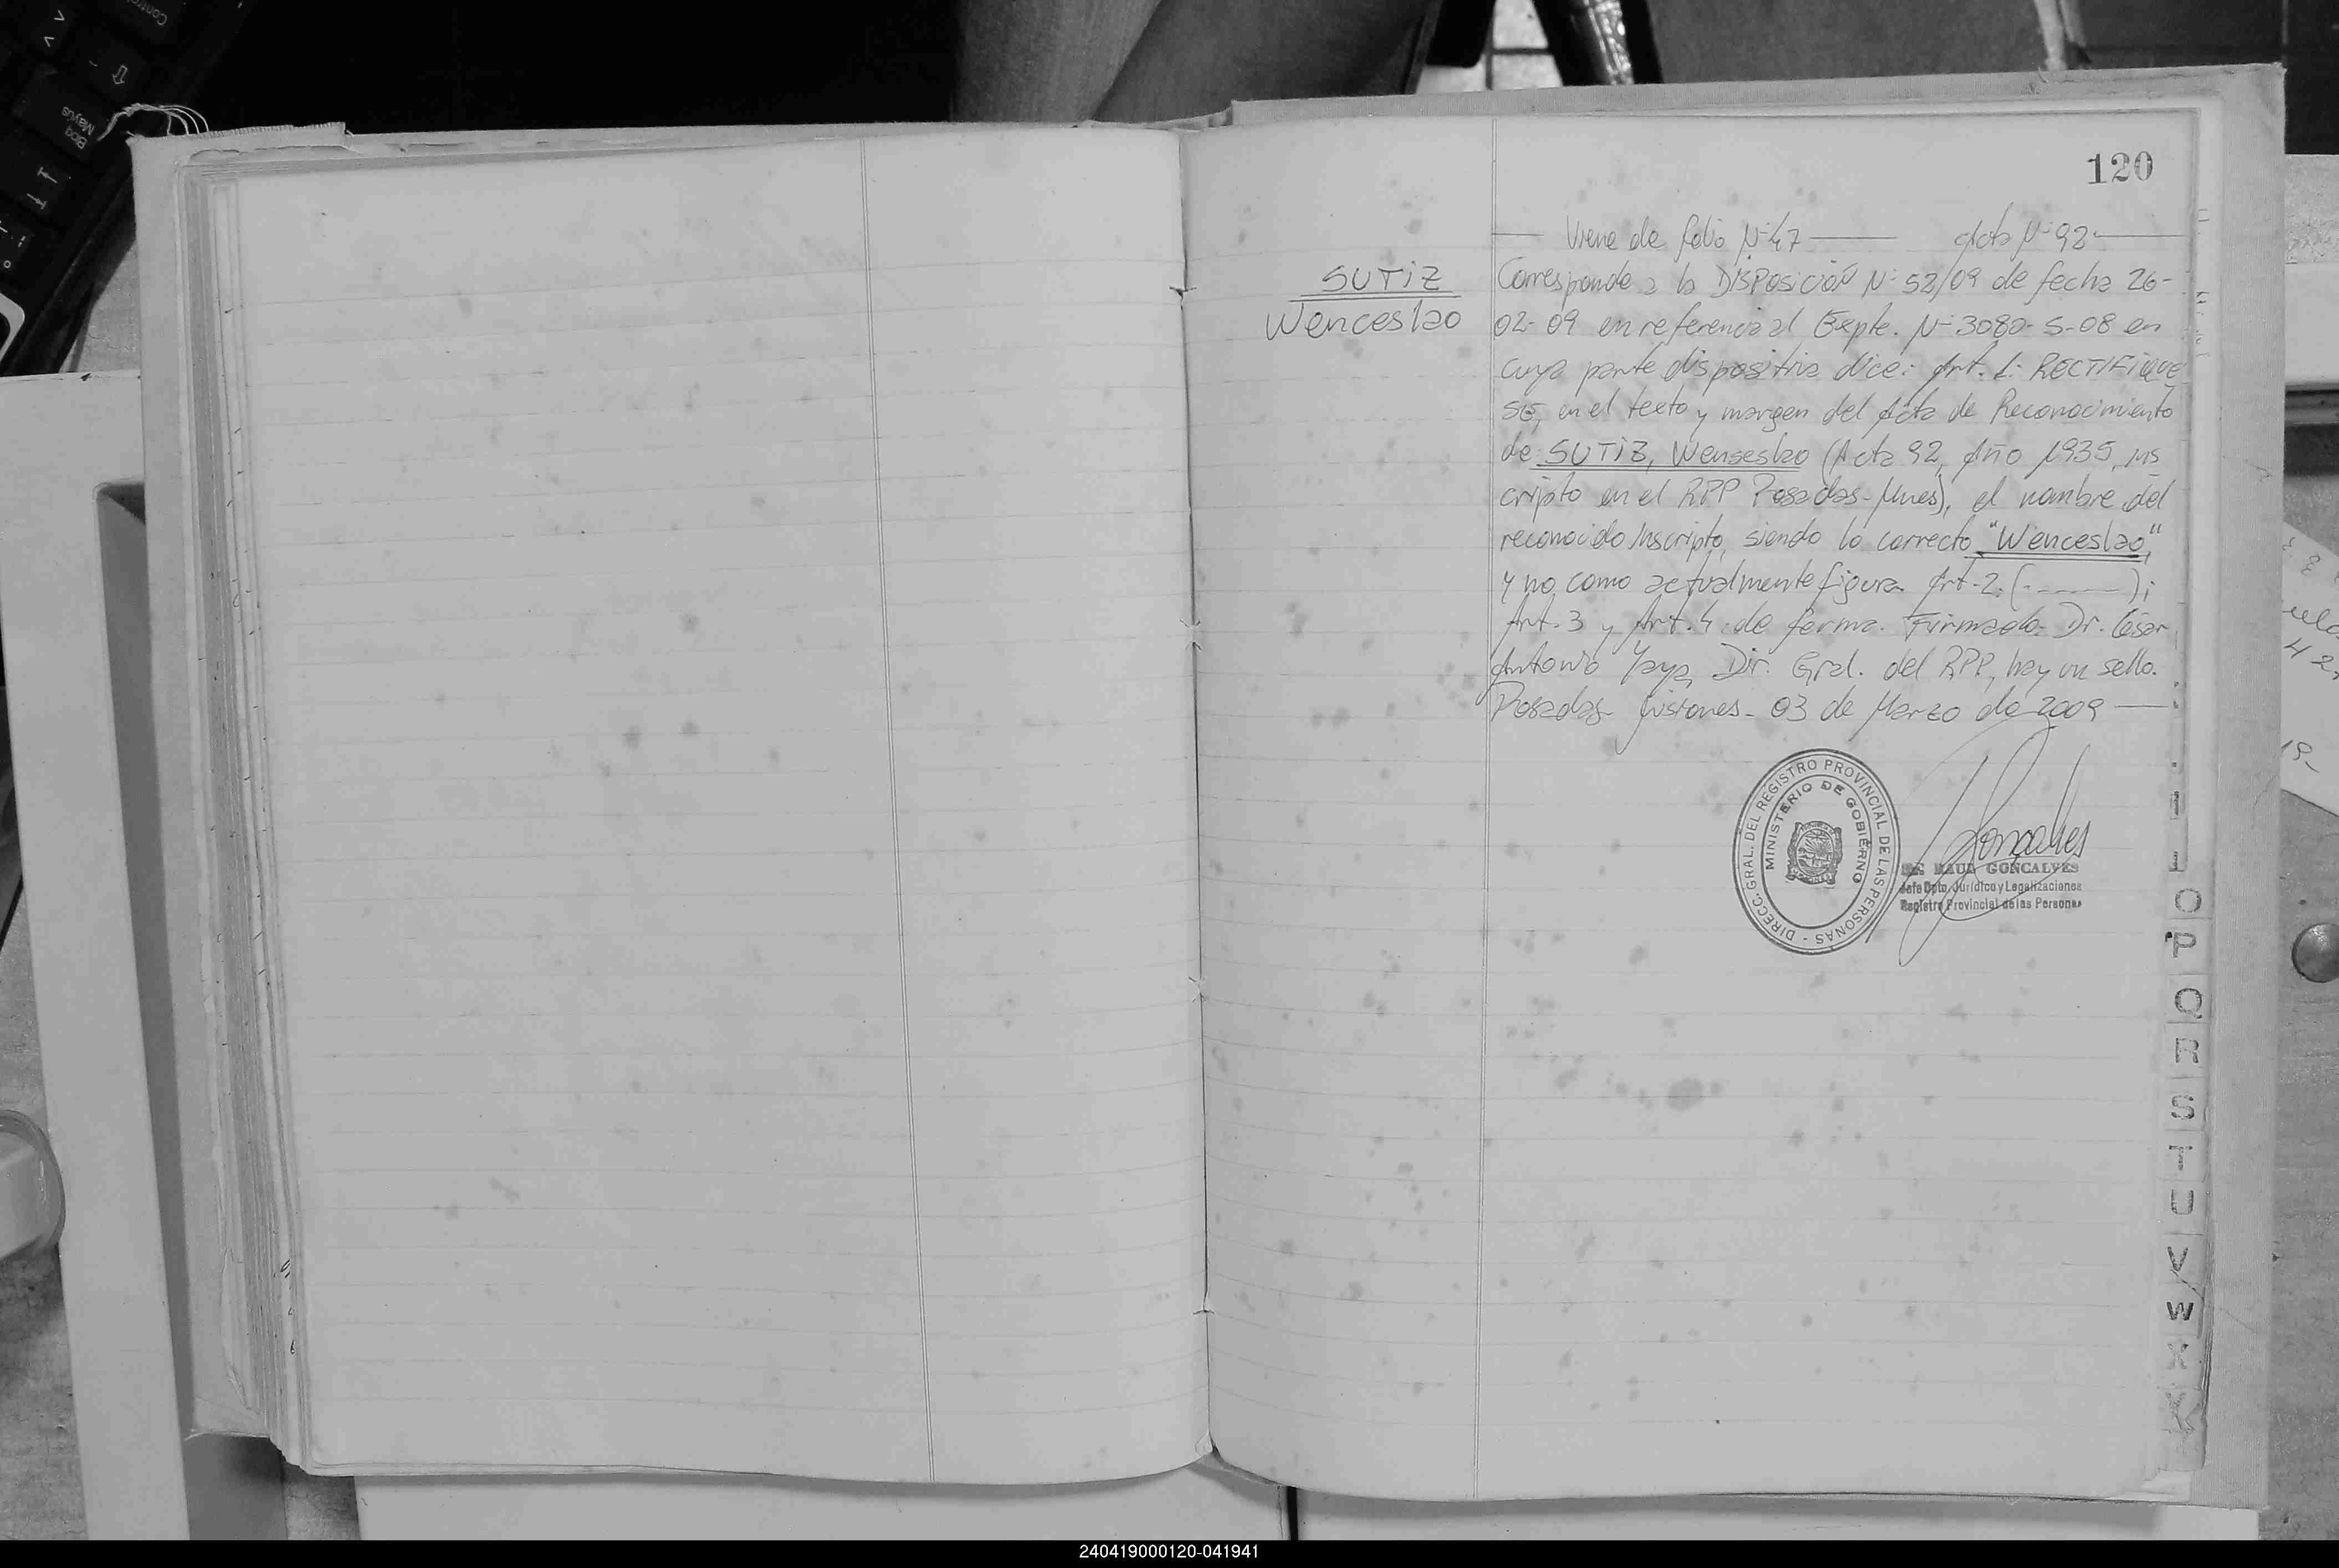 120
Viene de folio Nº 47 — Acta Nº 92 —
SUTIZ
Wenceslao
Corresponde a la DISPOSICIÓN Nº 52/09 de fecha 26-
02-09 en referencia al Expte. Nº 3080-S-08 en
cuya parte dispositiva dice: Art. 1: RECTIFIQUE
SE, en el texto y margen del Acta de Reconocimiento
de SUTIZ, Wenseslao (Acta 92, Año 1935, ins
cripto en el RPP Posadas-Mnes), el nombre del
reconocido/inscripto, siendo lo correcto "Wenceslao",
y no como actualmente figura. Art-2: (------);
Art. 3 y Art. 4: de forma. Firmado: Dr. César
Antonio Yaya, Dir. Gral. del RPP, hay un sello.
Posadas- Misiones- 03 de Marzo de 2009 —
DIRECC. GRAL. DEL REGISTRO PROVINCIAL DE LAS PERSONAS -
MINISTERIO DE GOBIERNO
Gonçalves
RAUL GONCALVES
Jefe Dpto. Jurídico y Legalizaciones
Registro Provincial de las Personas
O
P
Q
R
S
T
U
V
W
X
Bloq
Mayus
Control
240419000120-041941